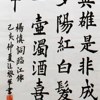 英雄是非成
夕陽紅白髮
壺濁酒喜
楊慎詞臨江仙
仲夏